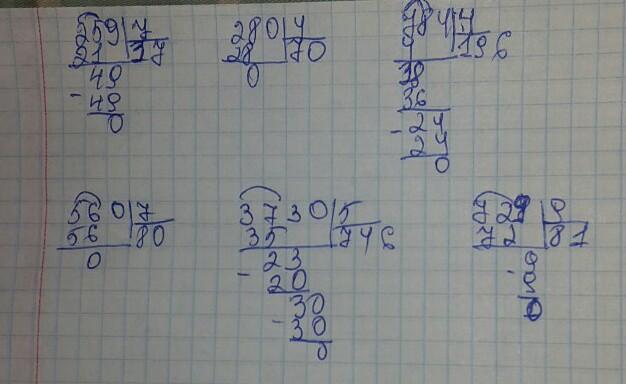 259 7
21 37
49
- 49
0
280 4
28 70
0
784 4
4 196
38
36
- 24
24
0
560 7
56 80
0
3730 5
35 746
- 23
20
30
- 30
0
729 9
72 81
- 9
9
0